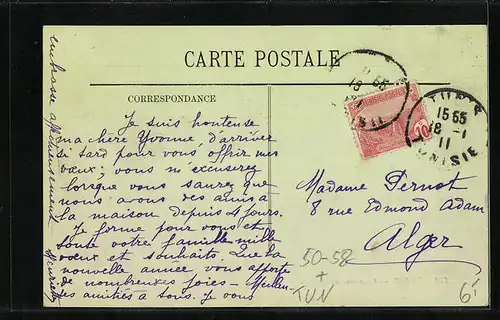 CARTE POSTALE
CORRESPONDANCE
Je suis honteuse
ma chère Yvonne, d'arriver
si tard pour vous offrir mes
vœux; vous m'excuserez
lorsque vous saurez que
nous avons des amis à
la maison depuis 4 jours.
Je forme pour vous et
toute votre famille mille
vœux et souhaits. Que la
nouvelle année vous apporte
de nombreuses joies -
des amitiés à tous. Je vous
embrasse affectueusement
Madame Pernot
8 rue Edmond Adam
Alger
TUNIS
15 55
18 -1
11
TUNISIE
10
50-58
+
TUN
6'